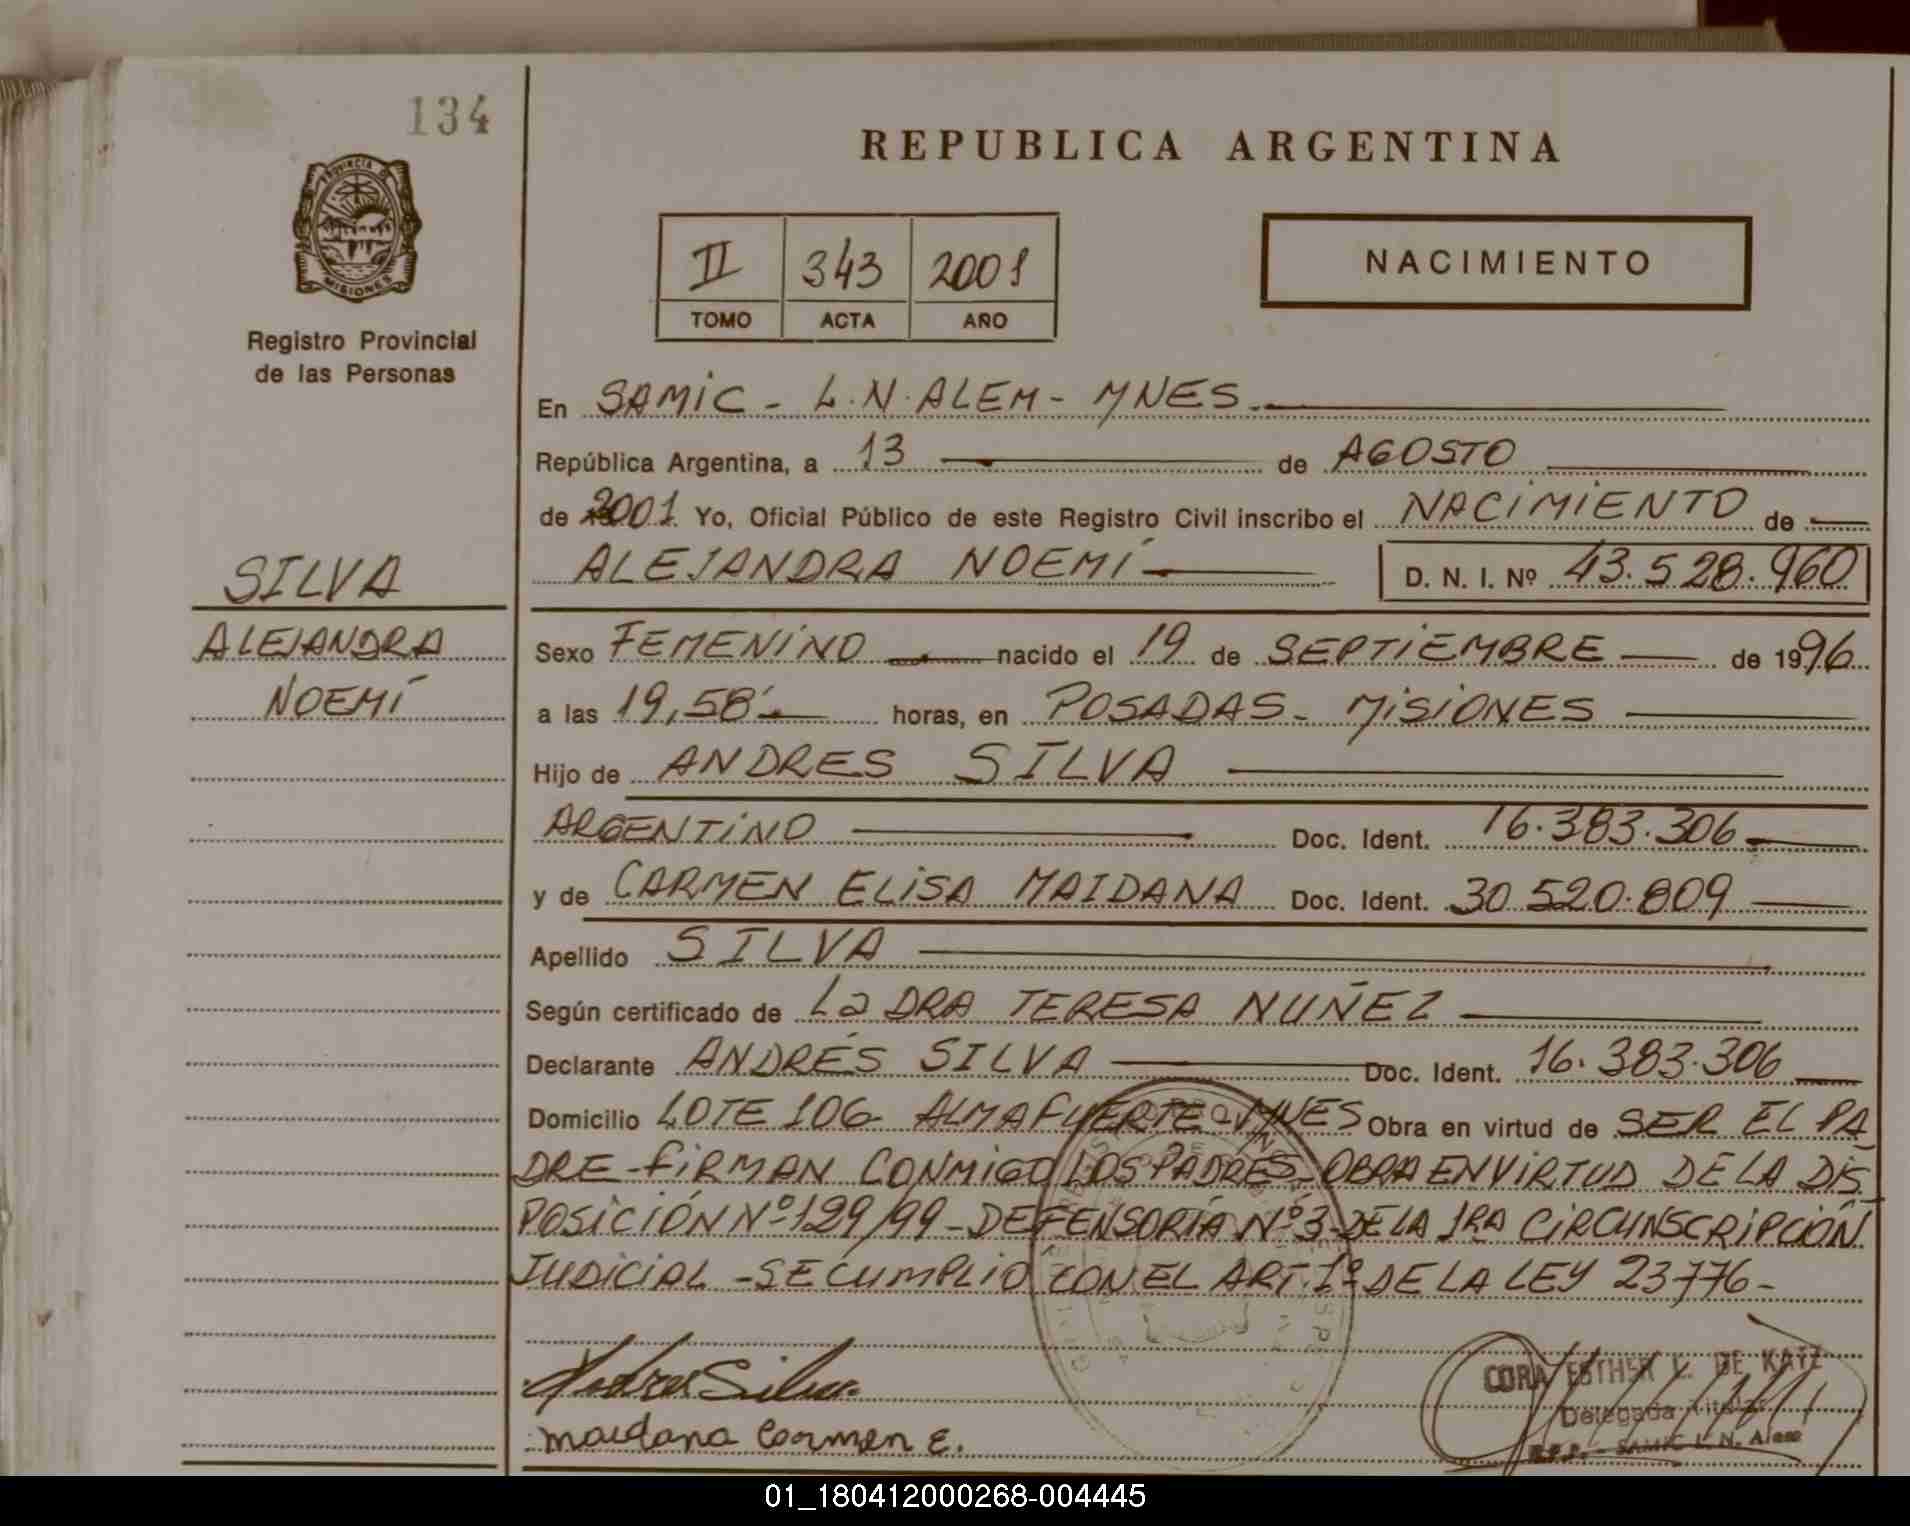 134
PROVINCIA DE
MISIONES
Registro Provincial
de las Personas
REPUBLICA ARGENTINA
II 343 2001
TOMO ACTA AÑO
NACIMIENTO
En SAMIC - L.N. ALEM - MNES.
República Argentina, a 13 de AGOSTO
de 2001. Yo, Oficial Público de este Registro Civil inscribo el NACIMIENTO de
ALEJANDRA NOEMÍ D. N. I. Nº 43.528.960
SILVA
ALEJANDRA
NOEMÍ
Sexo FEMENINO nacido el 19 de SEPTIEMBRE de 1996
a las 19,58' horas, en POSADAS - MISIONES
Hijo de ANDRES SILVA
ARGENTINO Doc. Ident. 16.383.306
y de CARMEN ELISA MAIDANA Doc. Ident. 30.520.809
Apellido SILVA
Según certificado de La DRA TERESA NUÑEZ
Declarante ANDRÉS SILVA Doc. Ident. 16.383.306
Domicilio LOTE 106 - ALMAFUERTE - MNES Obra en virtud de SER EL PA-
DRE - FIRMAN CONMIGO LOS PADRES - OBRA EN VIRTUD DE LA DIS-
POSICIÓN Nº 129/99 - DEFENSORÍA Nº 3 - DE LA 1RA CIRCUNSCRIPCIÓN
JUDICIAL - SE CUMPLIO CON EL ART. 1º DE LA LEY 23776 -
Andres Silva
Maidana Carmen E.
CORA ESTHER L. DE KATZ
Delegada Titular
R.P.P. - SAMIC L. N. Alem
01_180412000268-004445